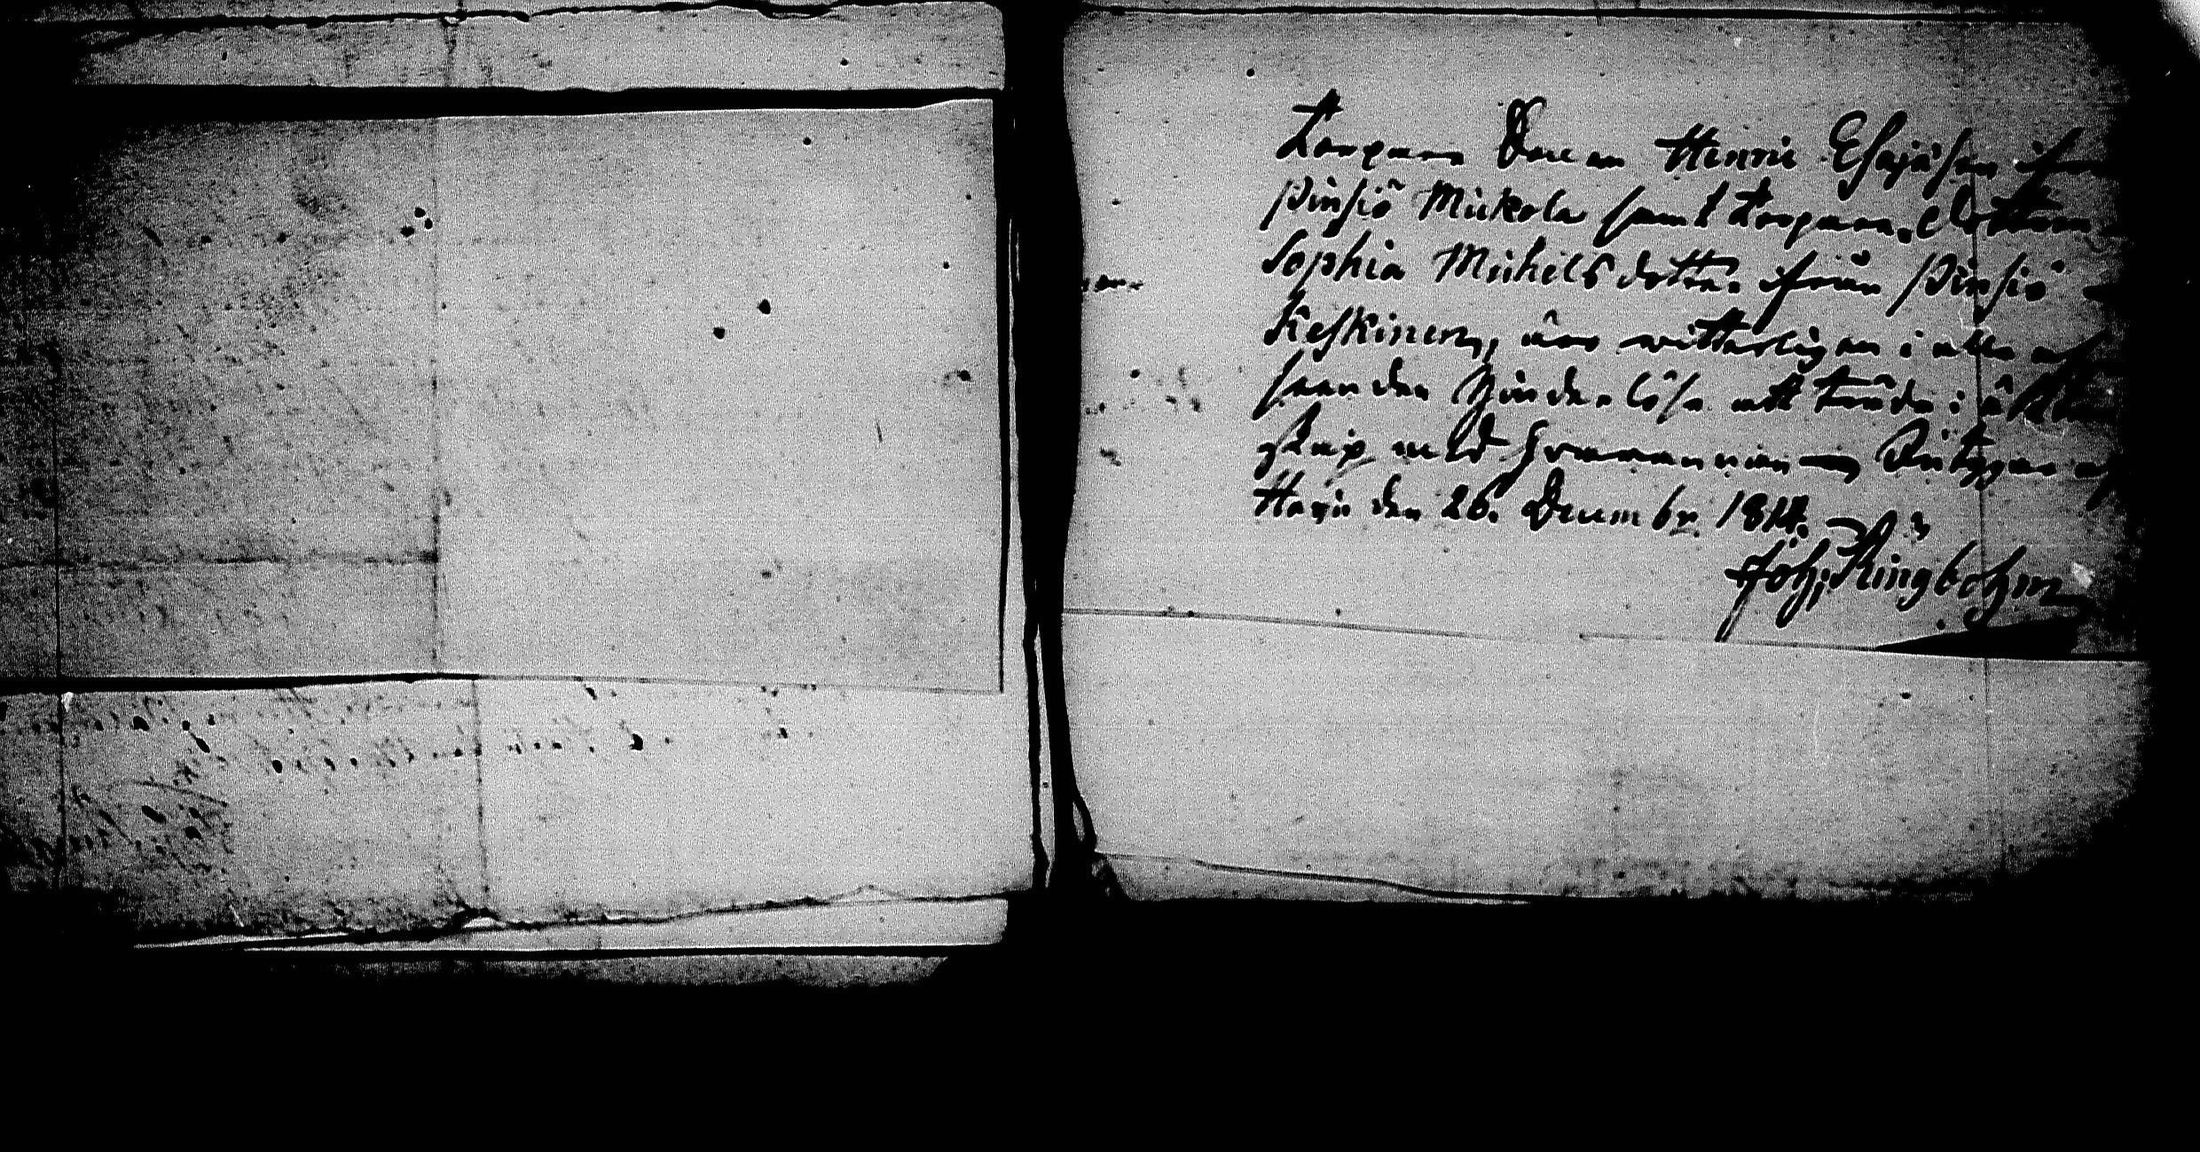 Torpare Sonen Henric Esajasson ifrån
Pinsiö Mickola samt torpare dottren
Sophia Michelsdotter ifrån Pinsiö
Keskinen, äro witterligen i alla af
seenden hinderlöse att träda i ägten
skap med hwarannan
Harju den 26. Decembr 1814.
Joh: Ringbohm